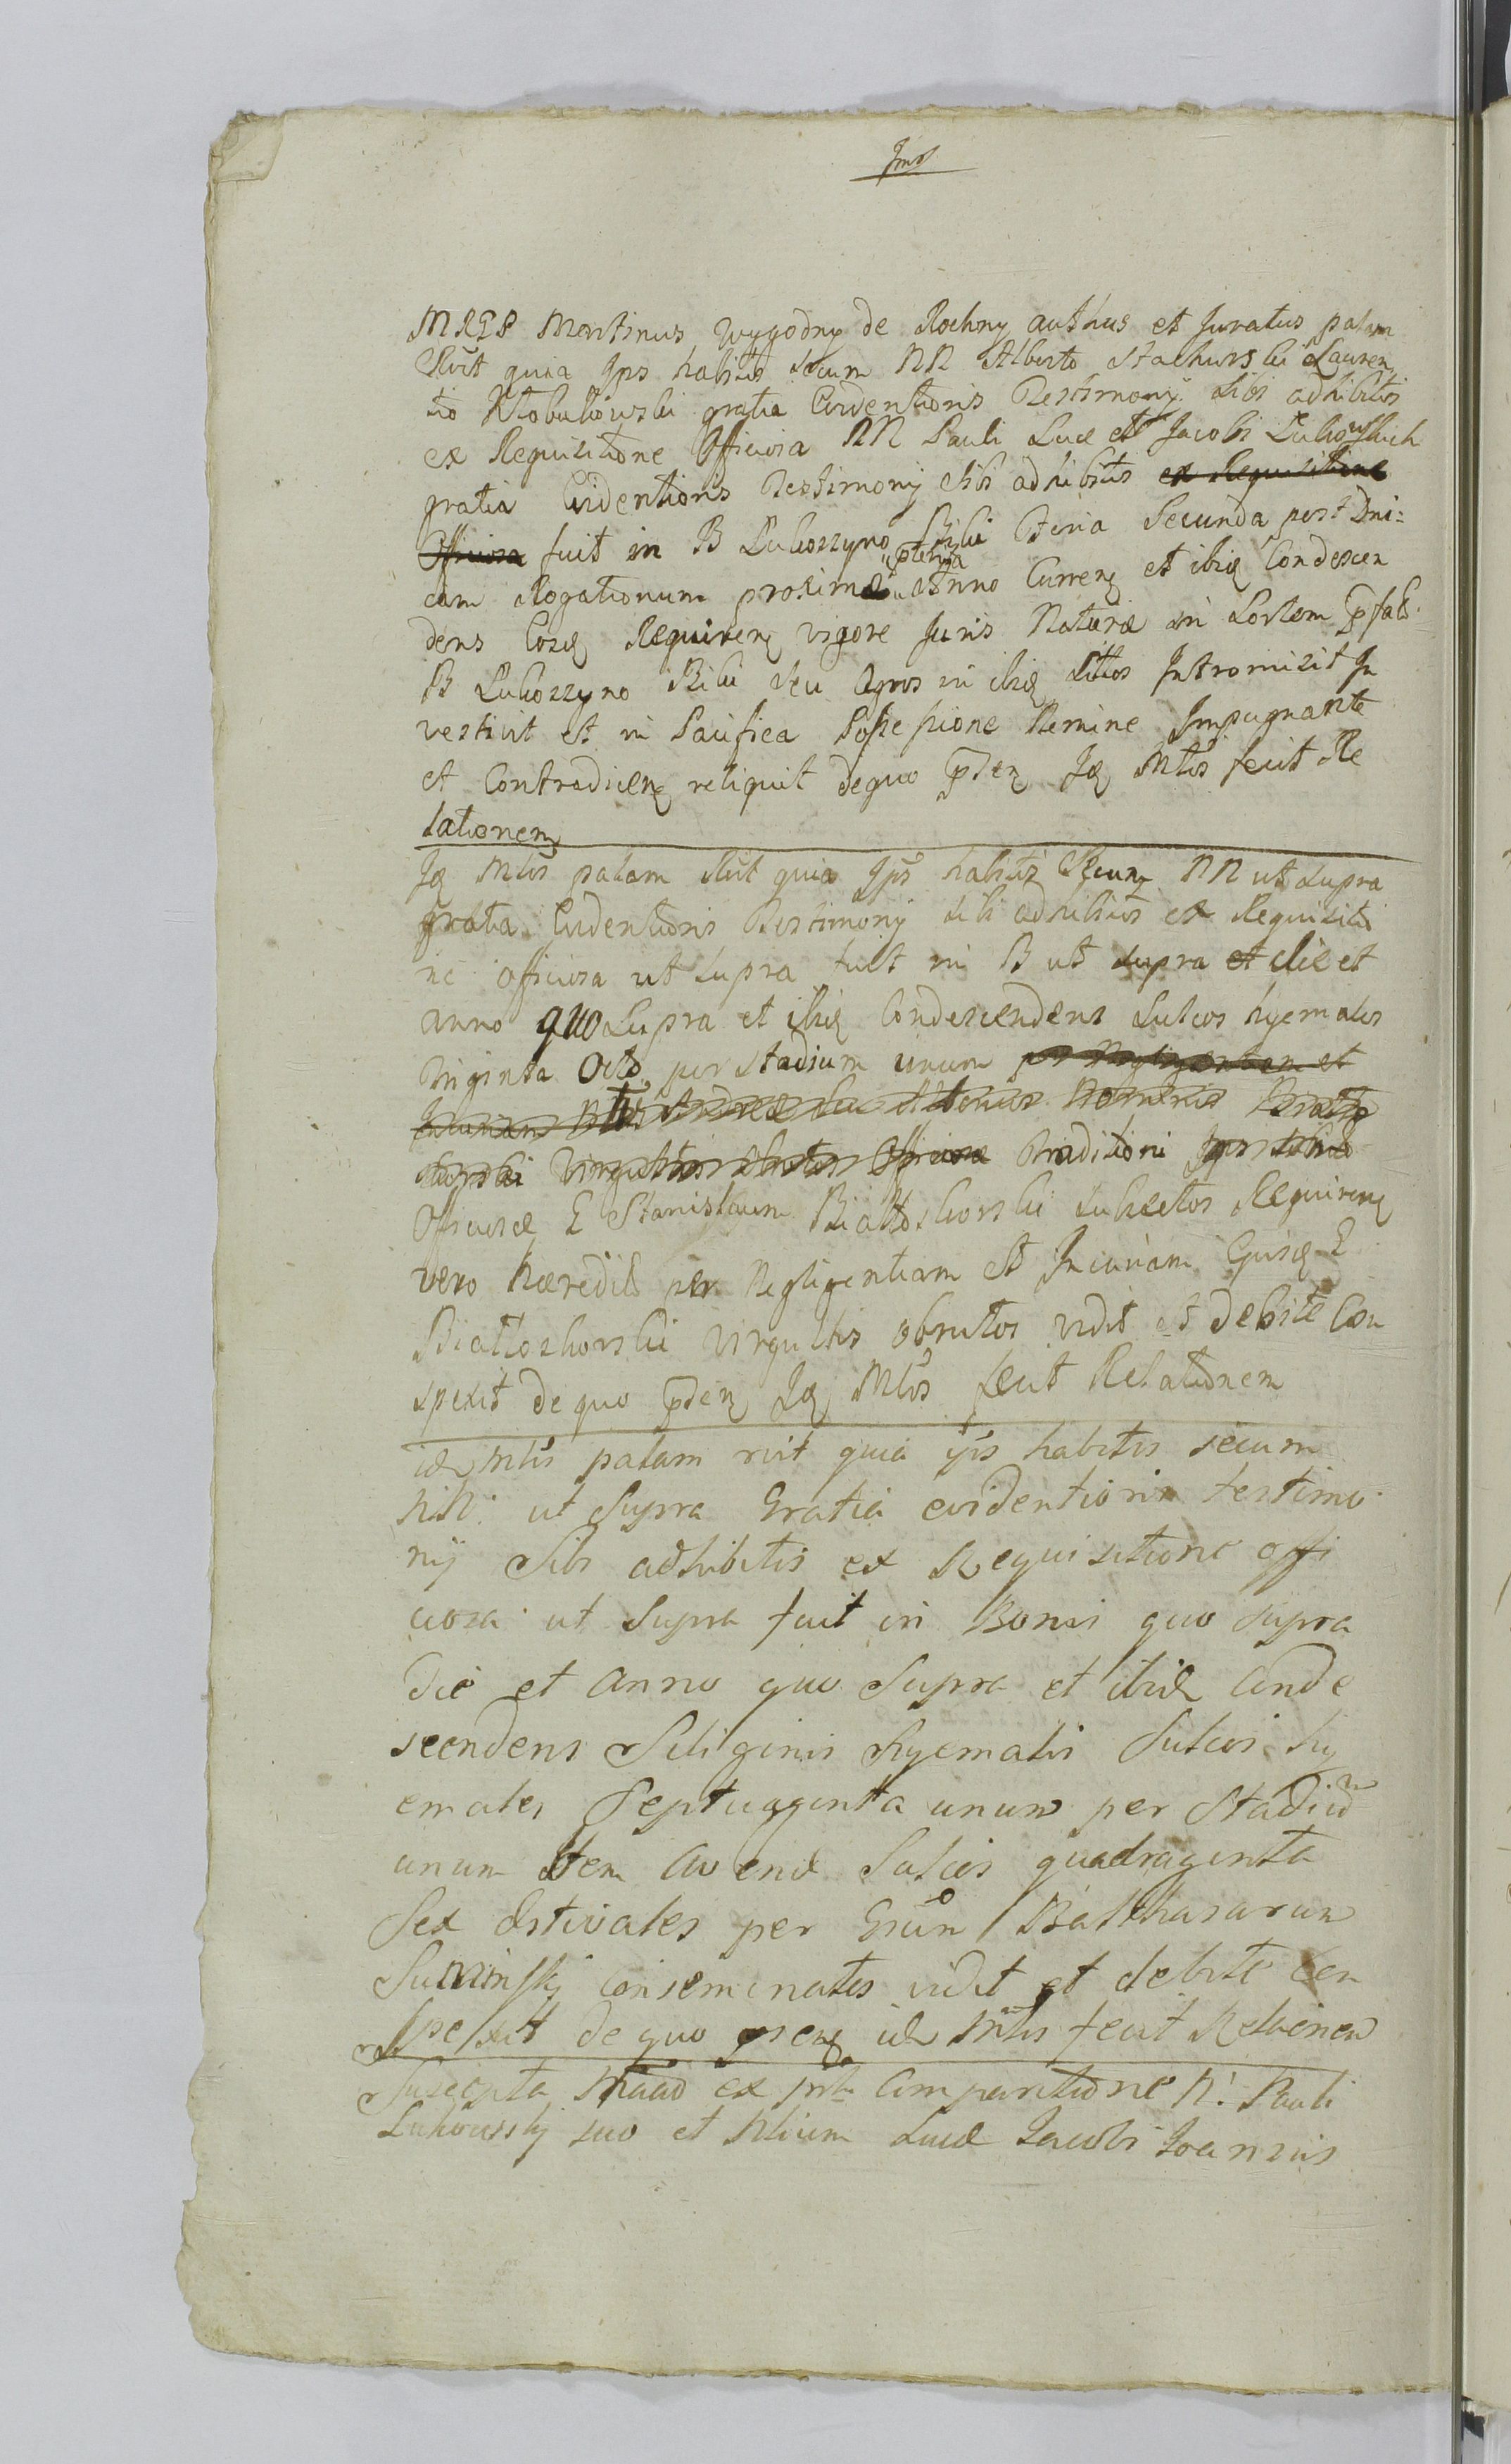 MRGS Martinus Wygodny de Rochny authus et Juratus palam
Rvit quia Ips habitis secum NN Alberto Stachurski Lauren
tio Kłobukowski gratia Evidentioris Testimony sibi adhibitis
ex Requisitione Officiosa NN Pauli Luce et Jacobi Lukowskich
gratia Evidentioris Testimony sibi adhibitis ex Requisitione
Officiosa fuit in B Lukoszyno Biki Feria Secunda post Dni:
cam Rogationum proxime Anno Curren et ibid Condescen
dens Eosd Requiren vigore Juris Naturæ in Sortem
B Lukoszyno Biki seu Agros in ibid sittos Intromisit In
vestivit et in Pacifica Possessione Nemine Impugnante
et Contradicen reliquit de quo pden Id Mtlis fecit Re
lationem
Id Mtlis palam Rvit quia Ips habitis Secum NN ut supra
gratia Evidentioris Testimony sibi adhibitis ex Requisitio
ne officiosa ut supra fuit in B ut supra et die et
anno quo Supra et ibid Condescendens Sulcos hyemales
Triginta Octo per stadium unum per Negligentiam et
Incuriam
Virgultis Obrutos Officiose Traditioni
Officiose G Stanislaum Białłoskorski subiectos Requiren
vero hæredit per Negligentiam et Incuriam Ejusd G
Białłoskorski virgultis obrutos vidit et debite Con
spexit de quo pden Id Mtlis fecit Relationem
id Mtlis palam rvit quia ips habitis secum
NN: ut Supra Gratia evidentioris testimo
nij Sibi adhibitis ex Requisitione offi
ciosa ut Supra fuit in Bonis quo supra
Die et anno quo Supra et ibid Conde
scendens Siliginis Hyemalis Sulcos hy
emales Septuaginta unum per Stadium
unum Item Avenæ Sulcos quadraginta
Sex Æstivales per Grum Balthasarum
Suminskj conseminatos vidit et debite Con
spexit de quo pren id Mtlis fecit Relnonem
Suscepta ex Comparitione N: Pauli
Lukowskj suo et Nlium Lucæ Jacobi Joannis